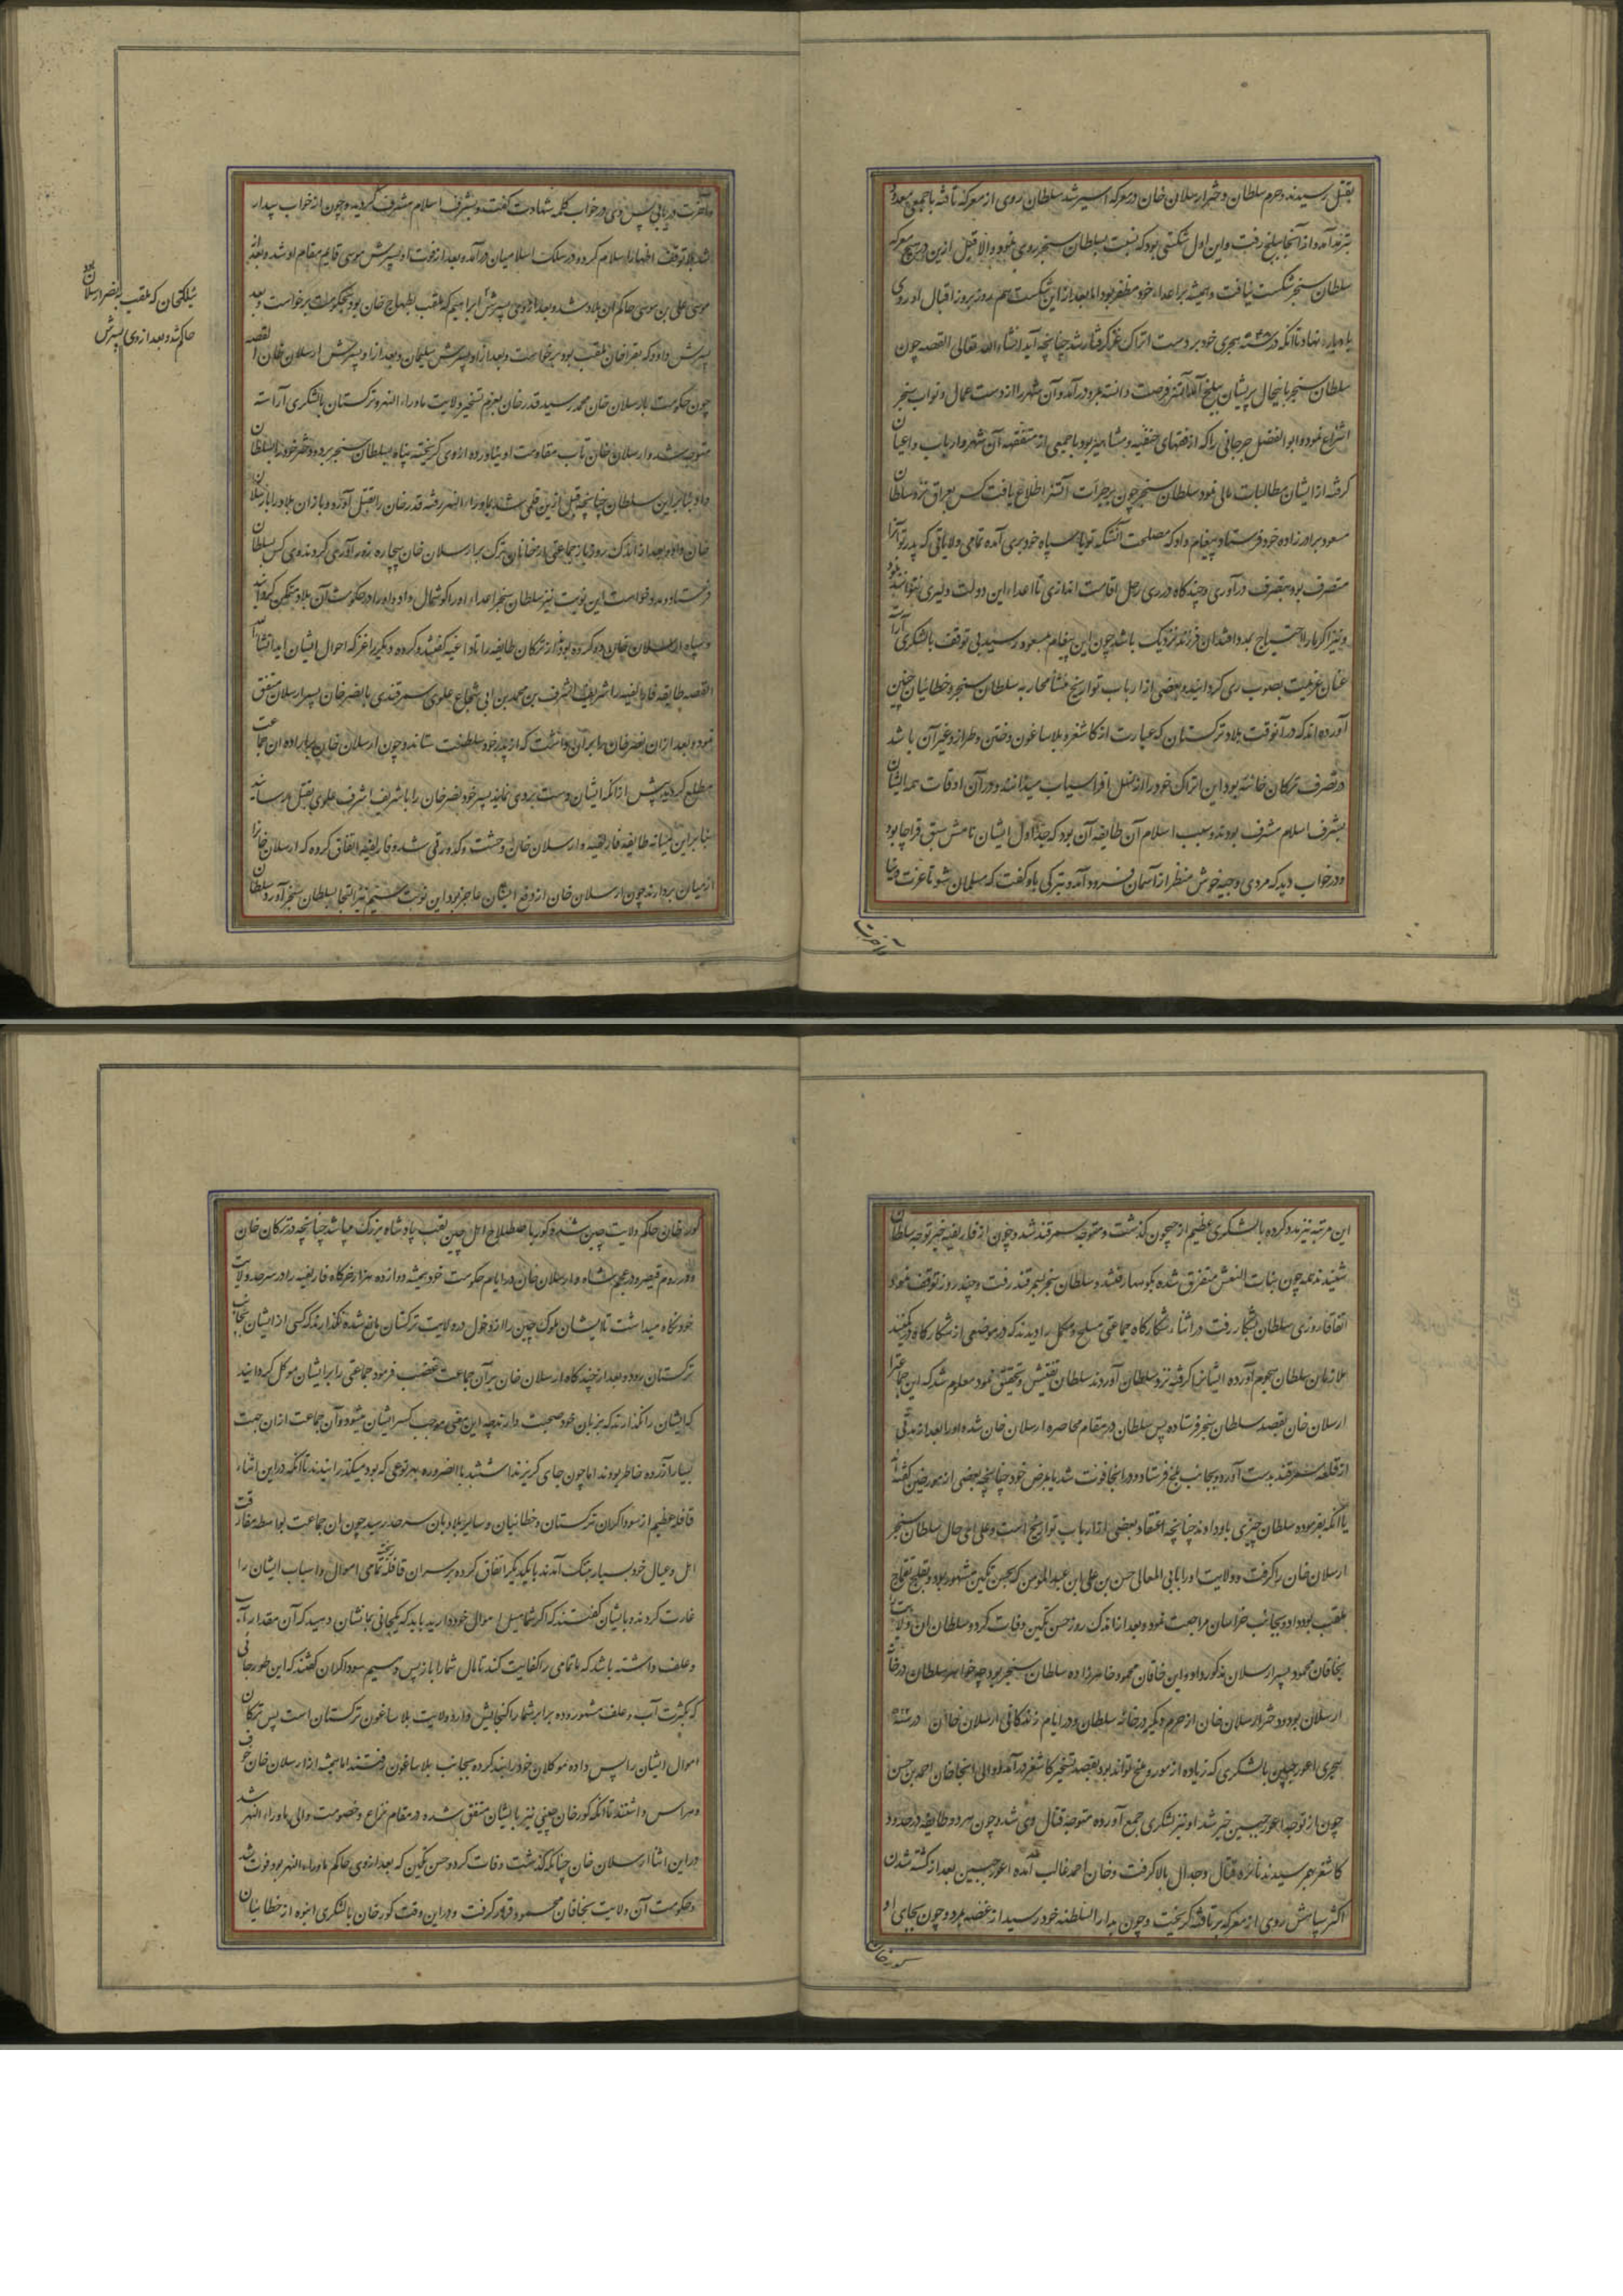 بقتل رسیدند و حرم سلطان و دختر ارسلان خان در معرکه اسیر شد سلطان روی از معرکه تافته با جمعی معدود
بترمد آمد و از آنجا ببلخ رفت و این اول شکستی بود که نسبت بسلطان سنجر روی نمود و الا قبل ازین در هیچ معرکه
سلطان سنجر شکست نیافت و همیشه بر اعداء خود مظفر بود اما بعد از این شکست هم روز بروز اقبال او روی
نهاد تا آنکه در سنه هجری خود بر دست اتراک غز گرفتار شد چنانچه آید انشاء الله تعالی القصه چون
سلطان سنجر باینحال پریشان ببلخ آمد آتسز فرصت دانسته بمرو درآمد و آن شهر را از دست عمال و نواب سنجر
انتزاع نمود و ابو الفضل را که از فقهای حنفیه و مشاهیر بود با جمعی از متفقهه آن شهر و ارباب و اعیان
گرفته از ایشان مطالبات مالی نمود سلطان سنجر چون بر جرأت آتسز اطلاع یافت کس بعراق نزد سلطان
مسعود برادرزاده خود فرستاد و پیغام داد که مصلحت آنستکه تو با سپاه خود بری آمده تمامی ولایاتی که پدر تو آنرا
متصرف بود بتصرف درآوری و چندگاه در ری رحل اقامت اندازی تا اعداء این دولت دلیری نتوانند نمود
و نیز اگر ما را احتیاج بمدد افتد آن فرزند نزدیک باشد چون این پیغام بمسعود رسید بی توقف با لشکری آراسته
عنان عزیمت بصوب ری گردانید و بعضی از ارباب تواریخ منشأ محاربه سلطان سنجر و خطائیان چنین
آورده‌اند که در آنوقت بلاد ترکستان که عبارت از کاشغر و بلاساغون و ختن و طراز و غیر آن باشد
در تصرف ترکان خانیه بود این اتراک خود را از نسل افراسیاب میدانند و در آن اوقات همه ایشان
بشرف اسلام مشرف بودند و سبب اسلام آن طایفه آن بود که جد اول ایشان نامش سبق قراچا بود
و در خواب دید که مردی وجیه خوش منظر از آسمان فرود آمد و بترکی باو گفت که مسلمان شو تا عزت دنیا
و آخرت
و آخرت دریابی پس وی در خواب کلمه شهادت گفته و بشرف اسلام مشرف گردیده و چون از خواب بیدار
شد بلا توقف اظهار اسلام کرده در سلک اسلامیان درآمد و بعد از فوت او پسرش موسی قایم مقام او شد و بعد از
موسی علی بن موسی حاکم آن بلاد شد و بعد از وی پسرش ابراهیم که ملقب بطمغاج خان بود بحکومت برخواست و بعد
پسرش داود که بقراخان ملقب بود برخواست و بعد از او پسرش سلیمان و بعد از او پسرش ارسلان خان القصه
چون حکومت بارسلان خان محمد رسید قدرخان بعزم تسخیر ولایت ماوراء النهر و ترکستان با لشکری آراسته
متوجه شد و ارسلان خان تاب مقاومت او نیاورده از وی گریخته پناه بسلطان سنجر برد و دختر خود را بسلطان
داد و بنابر این سلطان چنانچه قبل ازین قلمی شد بماوراء النهر رفته قدرخان را بقتل آورد و باز آن بلاد را بارسلان
خان داد و بعد از اندک روزی باز جماعتی از خانان ترک بر ارسلان خان بیچاره زور آوری کردند وی کس بسلطان
فرستاد و مدد خواست این نوبت نیز سلطان سنجر اعداء او را گوشمال داد و او را در حکومت آن بلاد متمکن گردانید
القصه طایفه قارلغیه را شریف اشرف بن محمد بن ابی شجاع علوی سمرقندی با نصر خان پسر ارسلان متفق
نمود و بعد از آن نصرخان را بر آن داشت که از پدر خود سلطنت ستاند و چون ارسلان خان بر اراده آن جماعت
مطلع گردید پیش از آنکه ایشان دست بروی نمایند پسر خود نصرخان را با شریف اشرف علوی بقتل رسانید
بنابر این میانه طایفه قارلغیه و ارسلان خان وحشت و کدورتی شد و قارلغیه اتفاق کرده که ارسلان خان را
از میان بردارند چون ارسلان خان از دفع ایشان عاجز بود این نوبت سیم نیز التجا بسلطان سنجر آورد سلطان
ییلکخان که ملقب بنصر ارسلان بود
حاکم شد و بعد از وی پسرش
این مرتبه نیز مدد کرده با لشکری عظیم از جیحون گذشت و متوجه سمرقند شد و چون از قارلغیه خبر توجه سلطان
شنیدند همه چون بنات النعش متفرق شده بکوهها رفتند و سلطان سنجر بسمرقند رفت و چند روز توقف نمود
اتفاقا روزی سلطان بشکار رفت در اثناء شکارگاه جماعتی مسلح و مکمل را دیدند که در موضعی از شکارگاه در کمینند
ملازمان سلطان هجوم آورده ایشانرا گرفته نزد سلطان آوردند سلطان تفتیش و تحقیق نمود معلوم شد که این جماعترا
ارسلان خان بقصد سلطان سنجر فرستاده پس سلطان در مقام محاصره ارسلان خان شده او را بعد از مدتی
از قلعه سمرقند بدست آورد و بجانب بلخ فرستاد و در آنجا فوت شد یا بمرض خود چنانچه بعضی از مورخین گفته‌اند
یا آنکه بفرموده سلطان چیزی باو دادند چنانچه اعتقاد بعضی از ارباب تواریخ است و علی ای حال سلطان سنجر
ارسلان خان را گرفت و ولایت او را بابی المعالی حسن بن علی بن عبد المؤمن که بحسن تکین مشهور بود و
ملقب بود داد و بجانب خراسان مراجعت نمود و بعد از اندک روز حسن تکین وفات کرد و سلطان آن ولایت را
بخاقان محمود پسر ارسلان مذکور داد و این خاقان محمود خاهرزاده سلطان سنجر بود چه خواهر سلطان در خانه
ارسلان بود و دختر ارسلان خان از حرم دیگر در خانه سلطان و در ایام زندگانی ارسلان خان در سنه ۵۲۲
هجری اعور چینی با لشکری که زیاده از مور و ملخ تواند بود بقصد تسخیر کاشغر درآمد و والی آنجا خان احمد بن حسن
چون از توجه اعور چین خبر شد او نیز لشکری جمع آورده متوجه قتال وی شد و چون هر دو طایفه در حدود
کاشغر بهم رسیدند نائره قتال و جدال بالا گرفت و خان احمد غالب آمده اعور چین بعد از کشته شدن
اکثر سپاهش روی از معرکه برتافته گریخت و چون بدار السلطنه خود رسید از غصه بمرد و چون بجای او
کورخان
کورخان حاکم ولایت چین شد و کور باصطلاح اهل چین لقب پادشاه بزرگ میباشد چنانچه در ترکان خان
و در روم قیصر و در عجم شاه و ارسلان خان در ایام حکومت خود همیشه دوازده هزار خرگاه قارلغیه را در سرحد ولایت
خود نگاه میداشت تا ایشان ملوک چین را از دخول در ولایت ترکستان مانع شده نگذارند که کسی از ایشان بجانب
ترکستان رود و بعد از چندگاه ارسلان خان بر آن جماعت غضب فرمود جماعتی را بر ایشان موکل گردانید
که ایشان را نگذارند که بزنان خود صحبت دارند چه این معنی موجب کسر ایشان میشود و آن جماعت از آن جهت
بسیار آزرده خاطر بودند اما چون جای گریز نداشتند بالضروره بهر نوعی که بود میگذرانیدند تا آنکه در این اثناء
قافله عظیم از سوداگران ترکستان و خطائیان و سایر بلاد بان سرحد رسید چون آن جماعت بواسطه مفارقت
اهل و عیال خود بسیار بتنگ آمدند با یکدیگر اتفاق کرده بر سر آن قافله ریخته تمامی اموال و اسباب ایشان را
غارت کردند و بایشان گفتند که اگر شما میل اموال خود دارید باید که یکجائی بما نشان دهید که آن مقدار آب
و علف داشته باشد که ما تمامی را کفایت کند تا مال شما را باز پس دهیم سوداگران گفتند که این طور جائی
که بکثرت آب و علف مشهور بوده برابر شما را گنجایش دارد ولایت بلاساغون ترکستان است پس ترکان
اموال ایشان را پس داده موکلان خود را بند کرده بجانب بلاساغون رفتند اما همیشه از ارسلان خان خوف
و هراس داشتند تا آنکه کورخان چینی نیز با ایشان متفق شده در مقام نزاع و خصومت والی ماوراء النهر شد
در این اثنا ارسلان خان چنانکه گذشت وفات کرد و حسن تکین که بعد از وی حاکم ماوراء النهر بود فوت شد
و حکومت آن ولایت بخاقان محمود قرار گرفت و در این وقت کورخان با لشکری انبوه از خطائیان